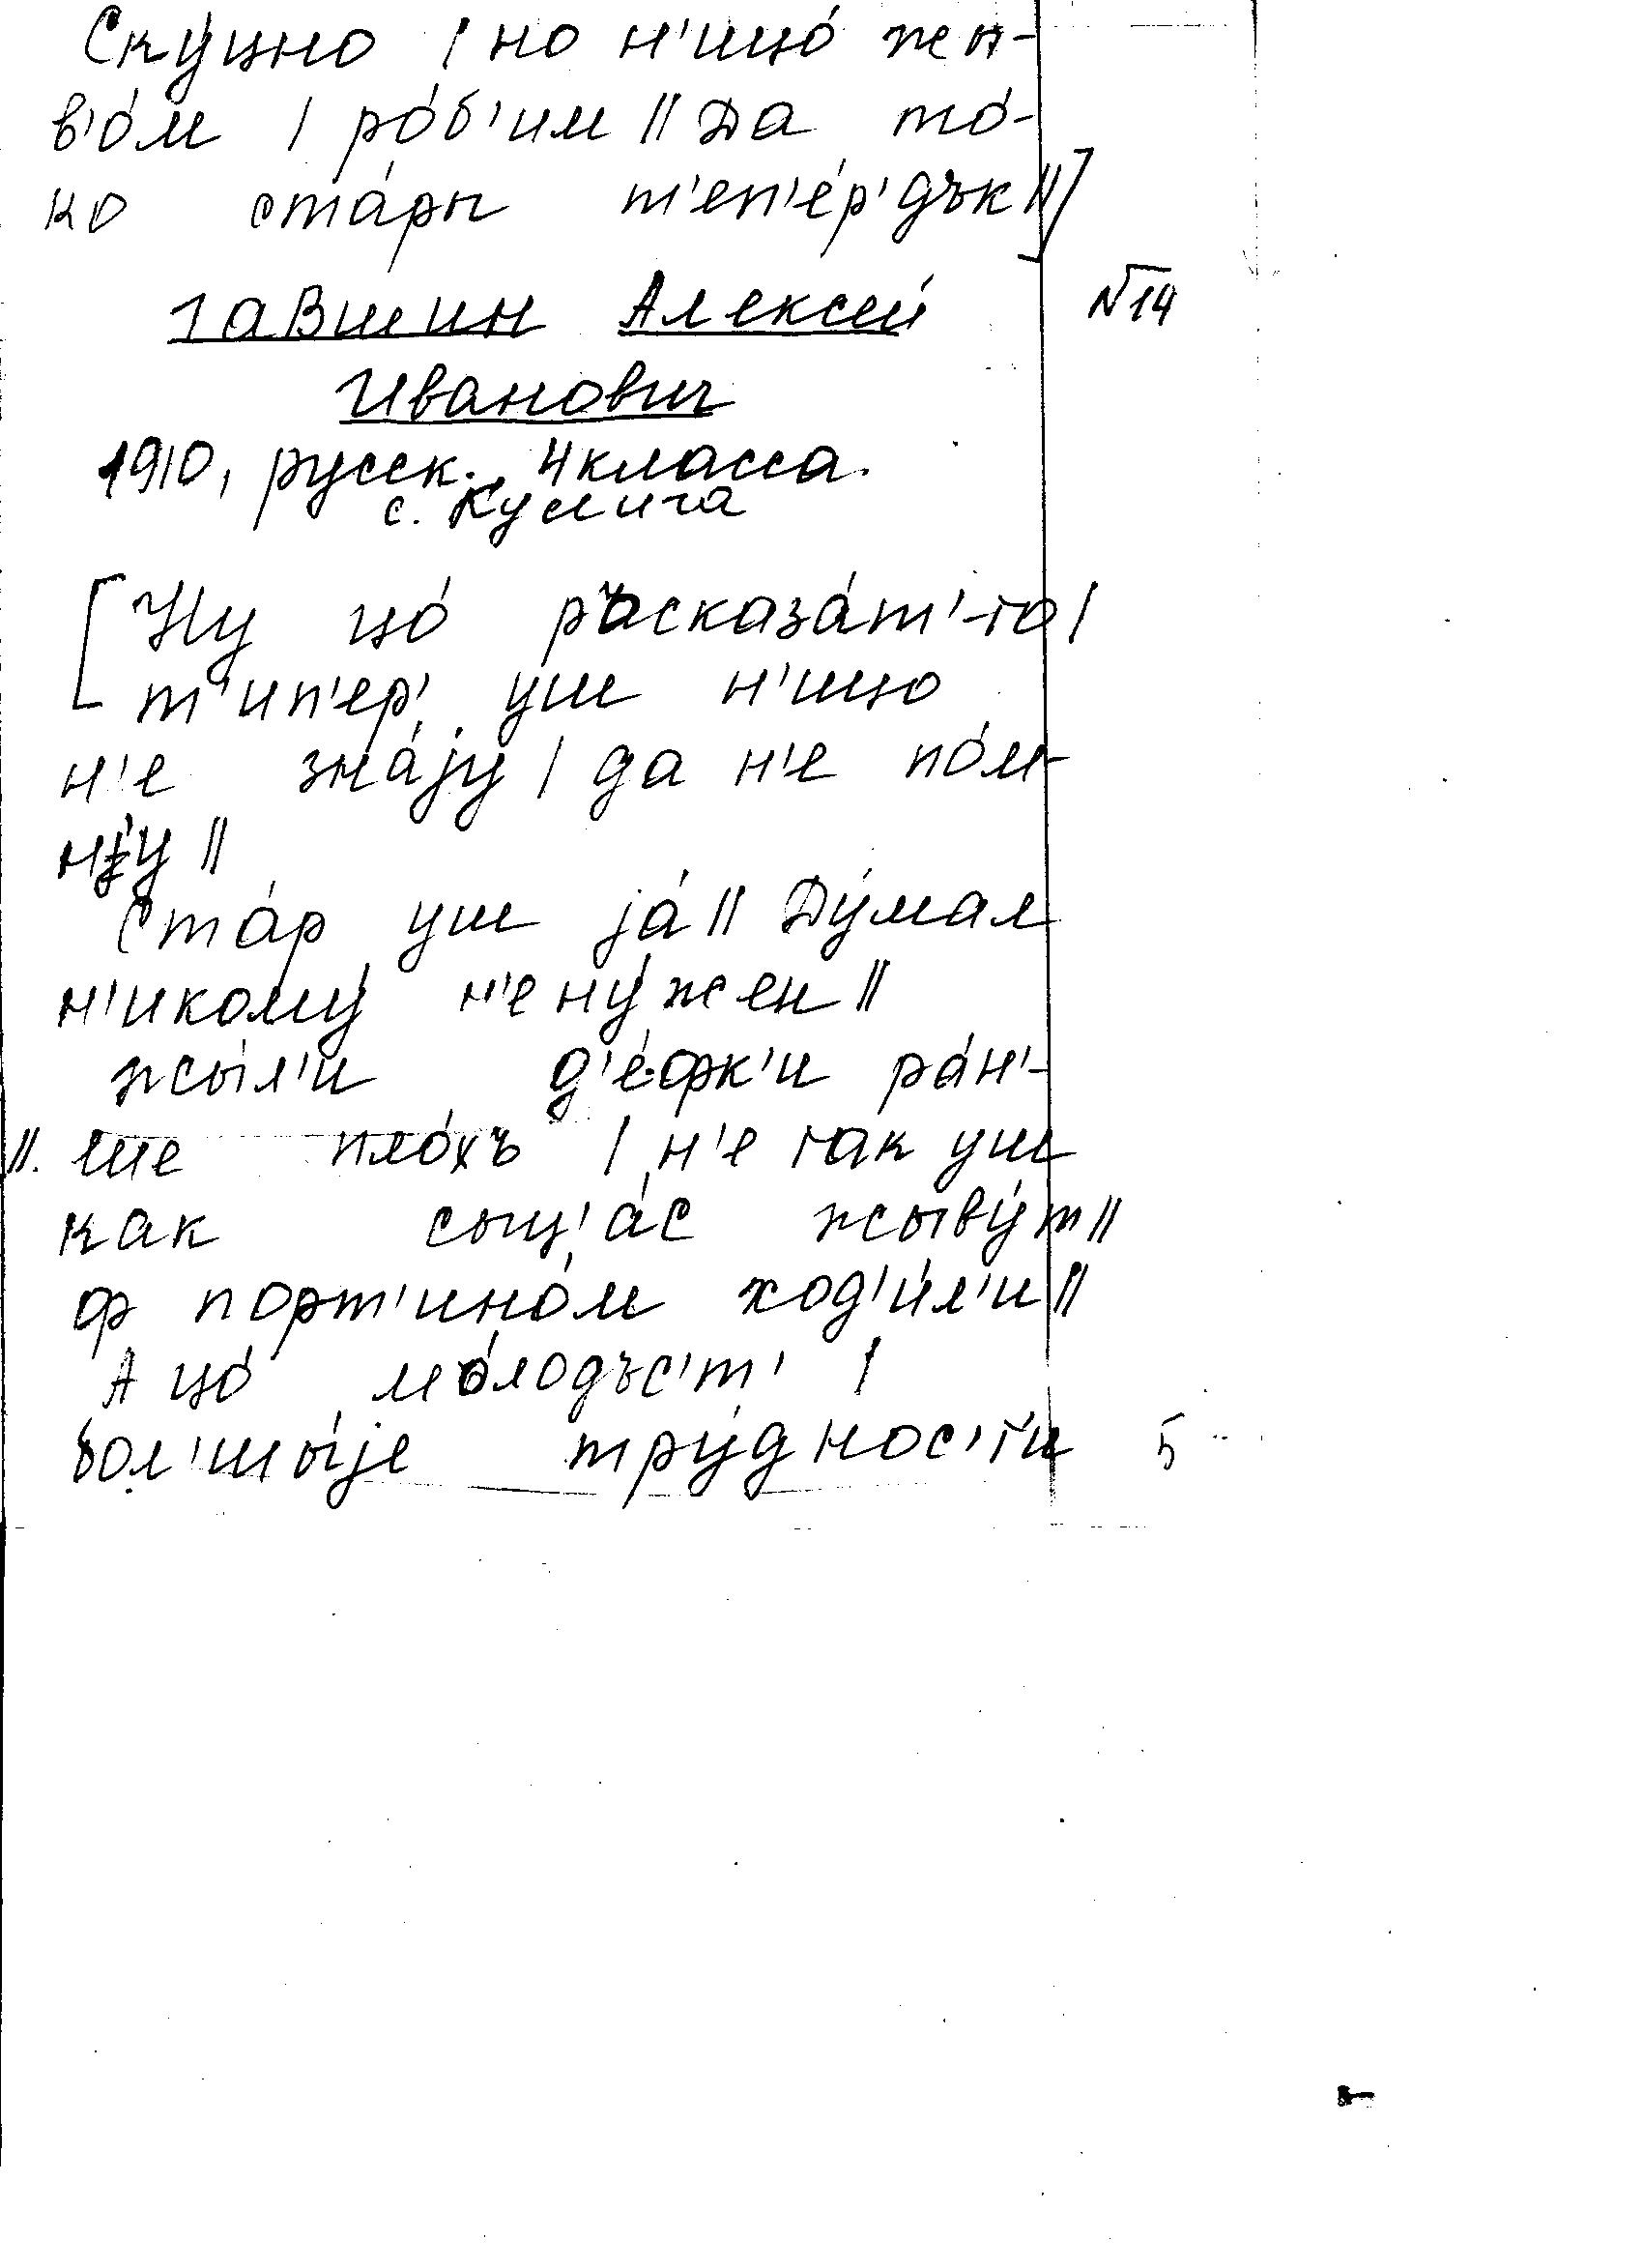 Ску́цно | но н'ицо́ жы-
в'о́м | ро́б'им || Да то́-
ко ста́ры т'еп'е́р' дък ||]
Гавшин Алексей №14
Иванович
1910, русск., 4 класса.
с. Кулига
[Ну цо́ расказа́т'-то |
т'ип'ер' уш н'ицо
н'е зна́jу | да н'е по́м-
н'у ||
Ста́р уш jа́ || Ду́мал
н'икому́ н'е ну́жен ||
жы́л'и д'е́фк'и ра́н'-
ше пло́хъ | н'е так уш
как сыц'а́с жыву́т ||
ф порт'ино́м ход'и́л'и ||
А цо́ мо́лодъс'т' |
бол'шы́jе тру́днос'т'и 5